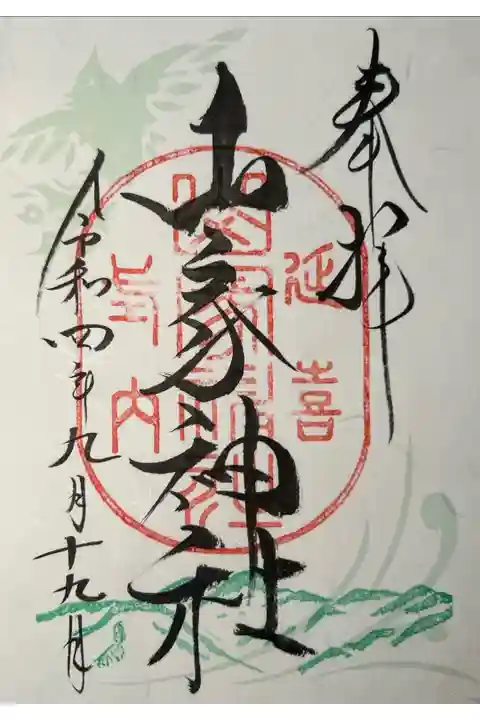 奉拝
延喜
山家神社
山家神社
式内
令和四年九月十九日